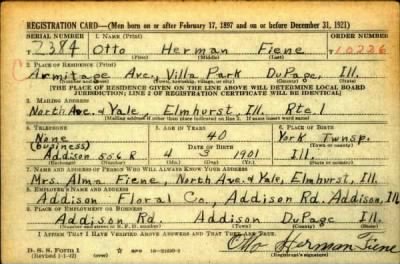 REGISTRATION CARD—(Men born on or after February 17, 1897 and on or before December 31, 1921)
SERIAL NUMBER 1. NAME (Print) ORDER NUMBER
T 2384 Otto Herman Fiene 10226
(First) (Middle) (Last)
2. PLACE OF RESIDENCE (Print)
Armitage Ave., Villa Park DuPage, Ill.
(Number and street) (Town, township, village, or city) (County) (State)
[THE PLACE OF RESIDENCE GIVEN ON THE LINE ABOVE WILL DETERMINE LOCAL BOARD
JURISDICTION; LINE 2 OF REGISTRATION CERTIFICATE WILL BE IDENTICAL]
3. MAILING ADDRESS
North Ave. & Yale, Elmhurst, Ill. Rte. 1
[Mailing address if other than place indicated on line 2. If same insert word same]
4. TELEPHONE 5. AGE IN YEARS 6. PLACE OF BIRTH
None 40 York Twnsp.
(business) DATE OF BIRTH (Town or county)
Addison 556 R 4 3 1901 Ill.
(Exchange) (Number) (Mo.) (Day) (Yr.) (State or country)
7. NAME AND ADDRESS OF PERSON WHO WILL ALWAYS KNOW YOUR ADDRESS
Mrs. Alma Fiene, North Ave. & Yale, Elmhurst, Ill.
8. EMPLOYER'S NAME AND ADDRESS
Addison Floral Co., Addison Rd. Addison, Ill
9. PLACE OF EMPLOYMENT OR BUSINESS
Addison Rd. Addison DuPage Ill.
(Number and street or R. F. D. number) (Town) (County) (State)
I AFFIRM THAT I HAVE VERIFIED ABOVE ANSWERS AND THAT THEY ARE TRUE.
Otto Herman Fiene
D. S. S. Form 1
(Revised 1-1-42) (over) (Registrant's signature)